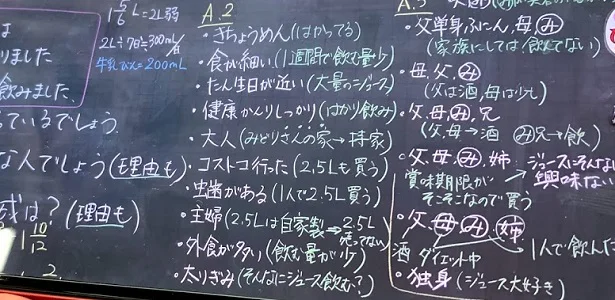 は
りました
飲みました
ているでしょう.
な人でしょう(理由も)
成は?(理由も)
1 5/6 L=2L弱
2L÷7日≒300mL/日
牛乳びん=200mL
1 10/12
2
A.2
・きちょうめん(はかってる)
・食が細い(1週間で飲む量少)
・たん生日が近い(大量のジュース)
・健康かんりしっかり(はかり飲み)
・大人(みどりさんの家→
・コストコ行った(2.5Lも買う)
・虫歯がある(1人で2.5L買う)
・主婦(2.5Lは自家製→2.5L売ってない)
・外食が多い(飲む量が少)
・太りぎみ(そんなにジュース飲む?)
A.3
・父単身ふにん,母,み
(家族にしては飲んでない)
・母,父,み
(父は酒,母は少し)
・父,母,み,兄
(父,母→酒 み兄→飲)
・父,母,み,姉→ジュースにそんな
興味ない
賞味期限が
そこそこなので買う
・父,母,み,姉
酒 ダイエット中
1人で飲んだ
・独身(ジュース大好き)